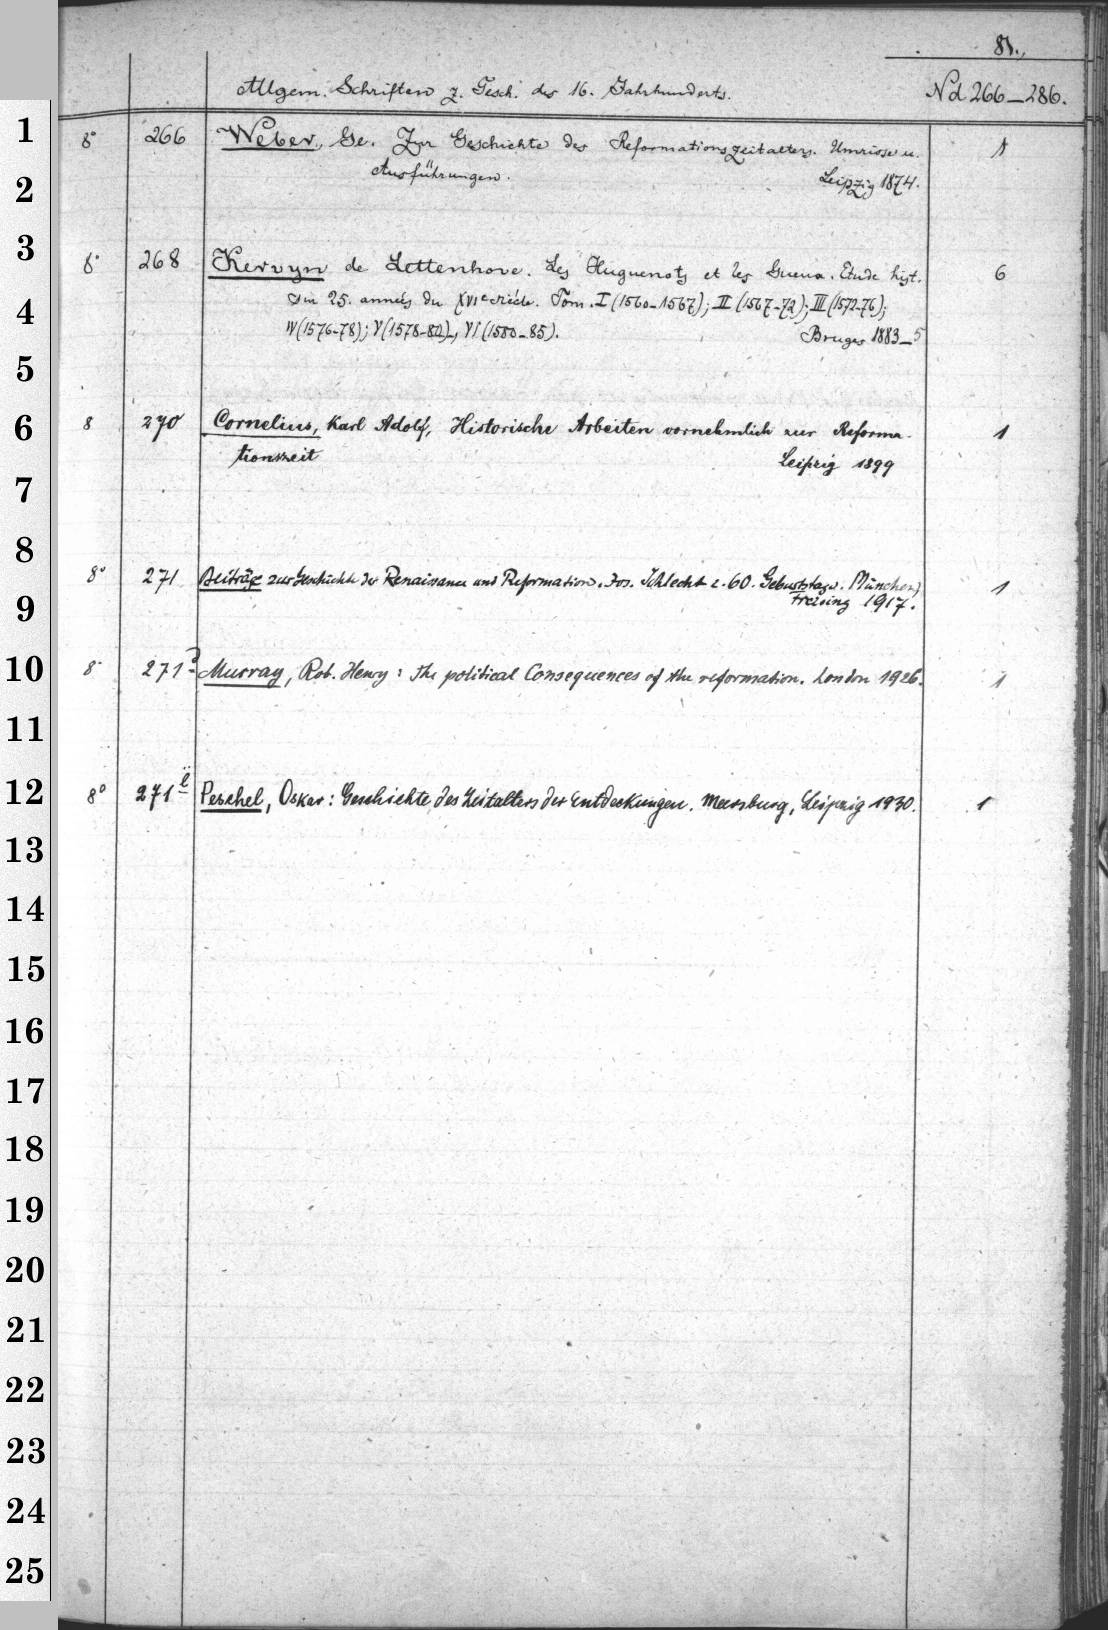 81.
Allgem. Schriften z. Gesch. des 16. Jahrhunderts. Nd 266–286.
1 8° 266 Weber, Ge. Zur Geschichte des Reformationszeitalters. Umrisse u. 1
2 Ausführungen. Leipzig 1874.
3 8° 268 Kervyn de Lettenhove. Les Huguenots et les Gueux. Etude hist. 6
4 sur 25. années du XVIe siècle. Tom. I (1560–1567); II (1567–72); III (1572–76);
IV (1576–78); V (1578–80), VI (1580–85). Bruges 1883–5
5
6 8 270 Cornelius, Karl Adolf, Historische Arbeiten vornehmlich zur Reforma- 1
tionszeit Leipzig 1899
7
8
8° 271 Beiträge zur Geschichte der Renaissance und Reformation. Jos. Schlecht z. 60. Geburtstage. München, 1
9 Freising 1917.
10 8° 271 Murray, Rob. Henry: The political Consequences of the reformation. London 1926. 1
11
12 8° 271 Peschel, Oskar: Geschichte des Zeitalters der Entdeckungen. Meersburg, Leipzig 1930. 1
13
14
15
16
17
18
19
20
21
22
23
24
25